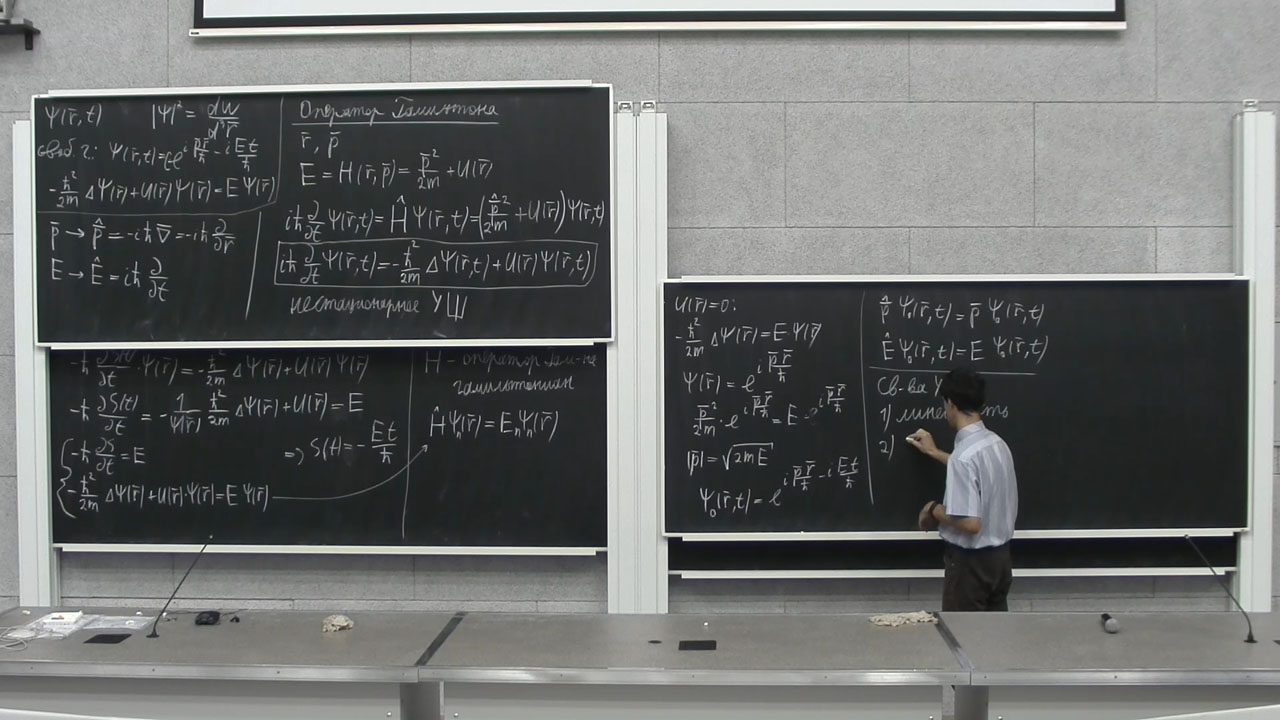 Ψ(r̄,t) |Ψ|² = dw/d³r̄
своб. ч.: Ψ(r̄,t)=Ce^{i p̄r̄/ħ - i Et/ħ}
-ħ²/2m ΔΨ(r̄)+U(r̄)Ψ(r̄)=EΨ(r̄)
p̄ → p̂̄ = -iħ∇̄ = -iħ ∂/∂r̄
E → Ê = iħ ∂/∂t
Оператор Гамильтона
r̄, p̄
E = H(r̄,p̄) = p̄²/2m + U(r̄)
iħ ∂/∂t Ψ(r̄,t) = ĤΨ(r̄,t) = (p̂̄²/2m + U(r̄))Ψ(r̄,t)
iħ ∂/∂t Ψ(r̄,t) = -ħ²/2m ΔΨ(r̄,t)+U(r̄)Ψ(r̄,t)
нестационарное УШ
-ħ ∂S(t)/∂t · Ψ(r̄) = -ħ²/2m ΔΨ(r̄)+U(r̄)Ψ(r̄)
-ħ ∂S(t)/∂t = -1/Ψ(r̄) ħ²/2m ΔΨ(r̄)+U(r̄) = E
-ħ ∂S/∂t = E => S(t) = -Et/ħ
-ħ²/2m ΔΨ(r̄)+U(r̄)·Ψ(r̄)=EΨ(r̄)
H - оператор Гам-на
гамильтониан
ĤΨₙ(r̄)=EₙΨₙ(r̄)
U(r̄)=0:
-ħ²/2m ΔΨ(r̄)=EΨ(r̄)
Ψ(r̄) = e^{i p̄r̄/ħ}
p̄²/2m · e^{i p̄r̄/ħ} = E · e^{i p̄r̄/ħ}
|p̄| = √2mE
Ψ₀(r̄,t) = e^{i p̄r̄/ħ - i Et/ħ}
p̂̄ Ψ₀(r̄,t) = p̄ Ψ₀(r̄,t)
Ê Ψ₀(r̄,t) = E Ψ₀(r̄,t)
Св-ва
1)
2)